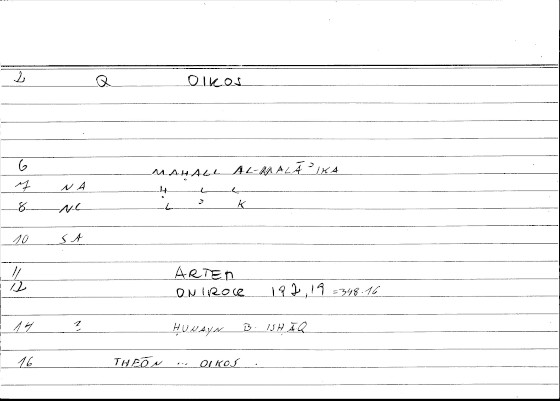 2 Q OIKOS
6 MAḤALL AL-MALĀʾIKA
7 NA Ḥ L L
8 NC L ʾ K
10 SA
11 ARTEM
12 ONIROCR 192,19 =348.16
14 ? ḤUNAYN B. ISḤĀQ
16 THEŌN ... OIKOS .